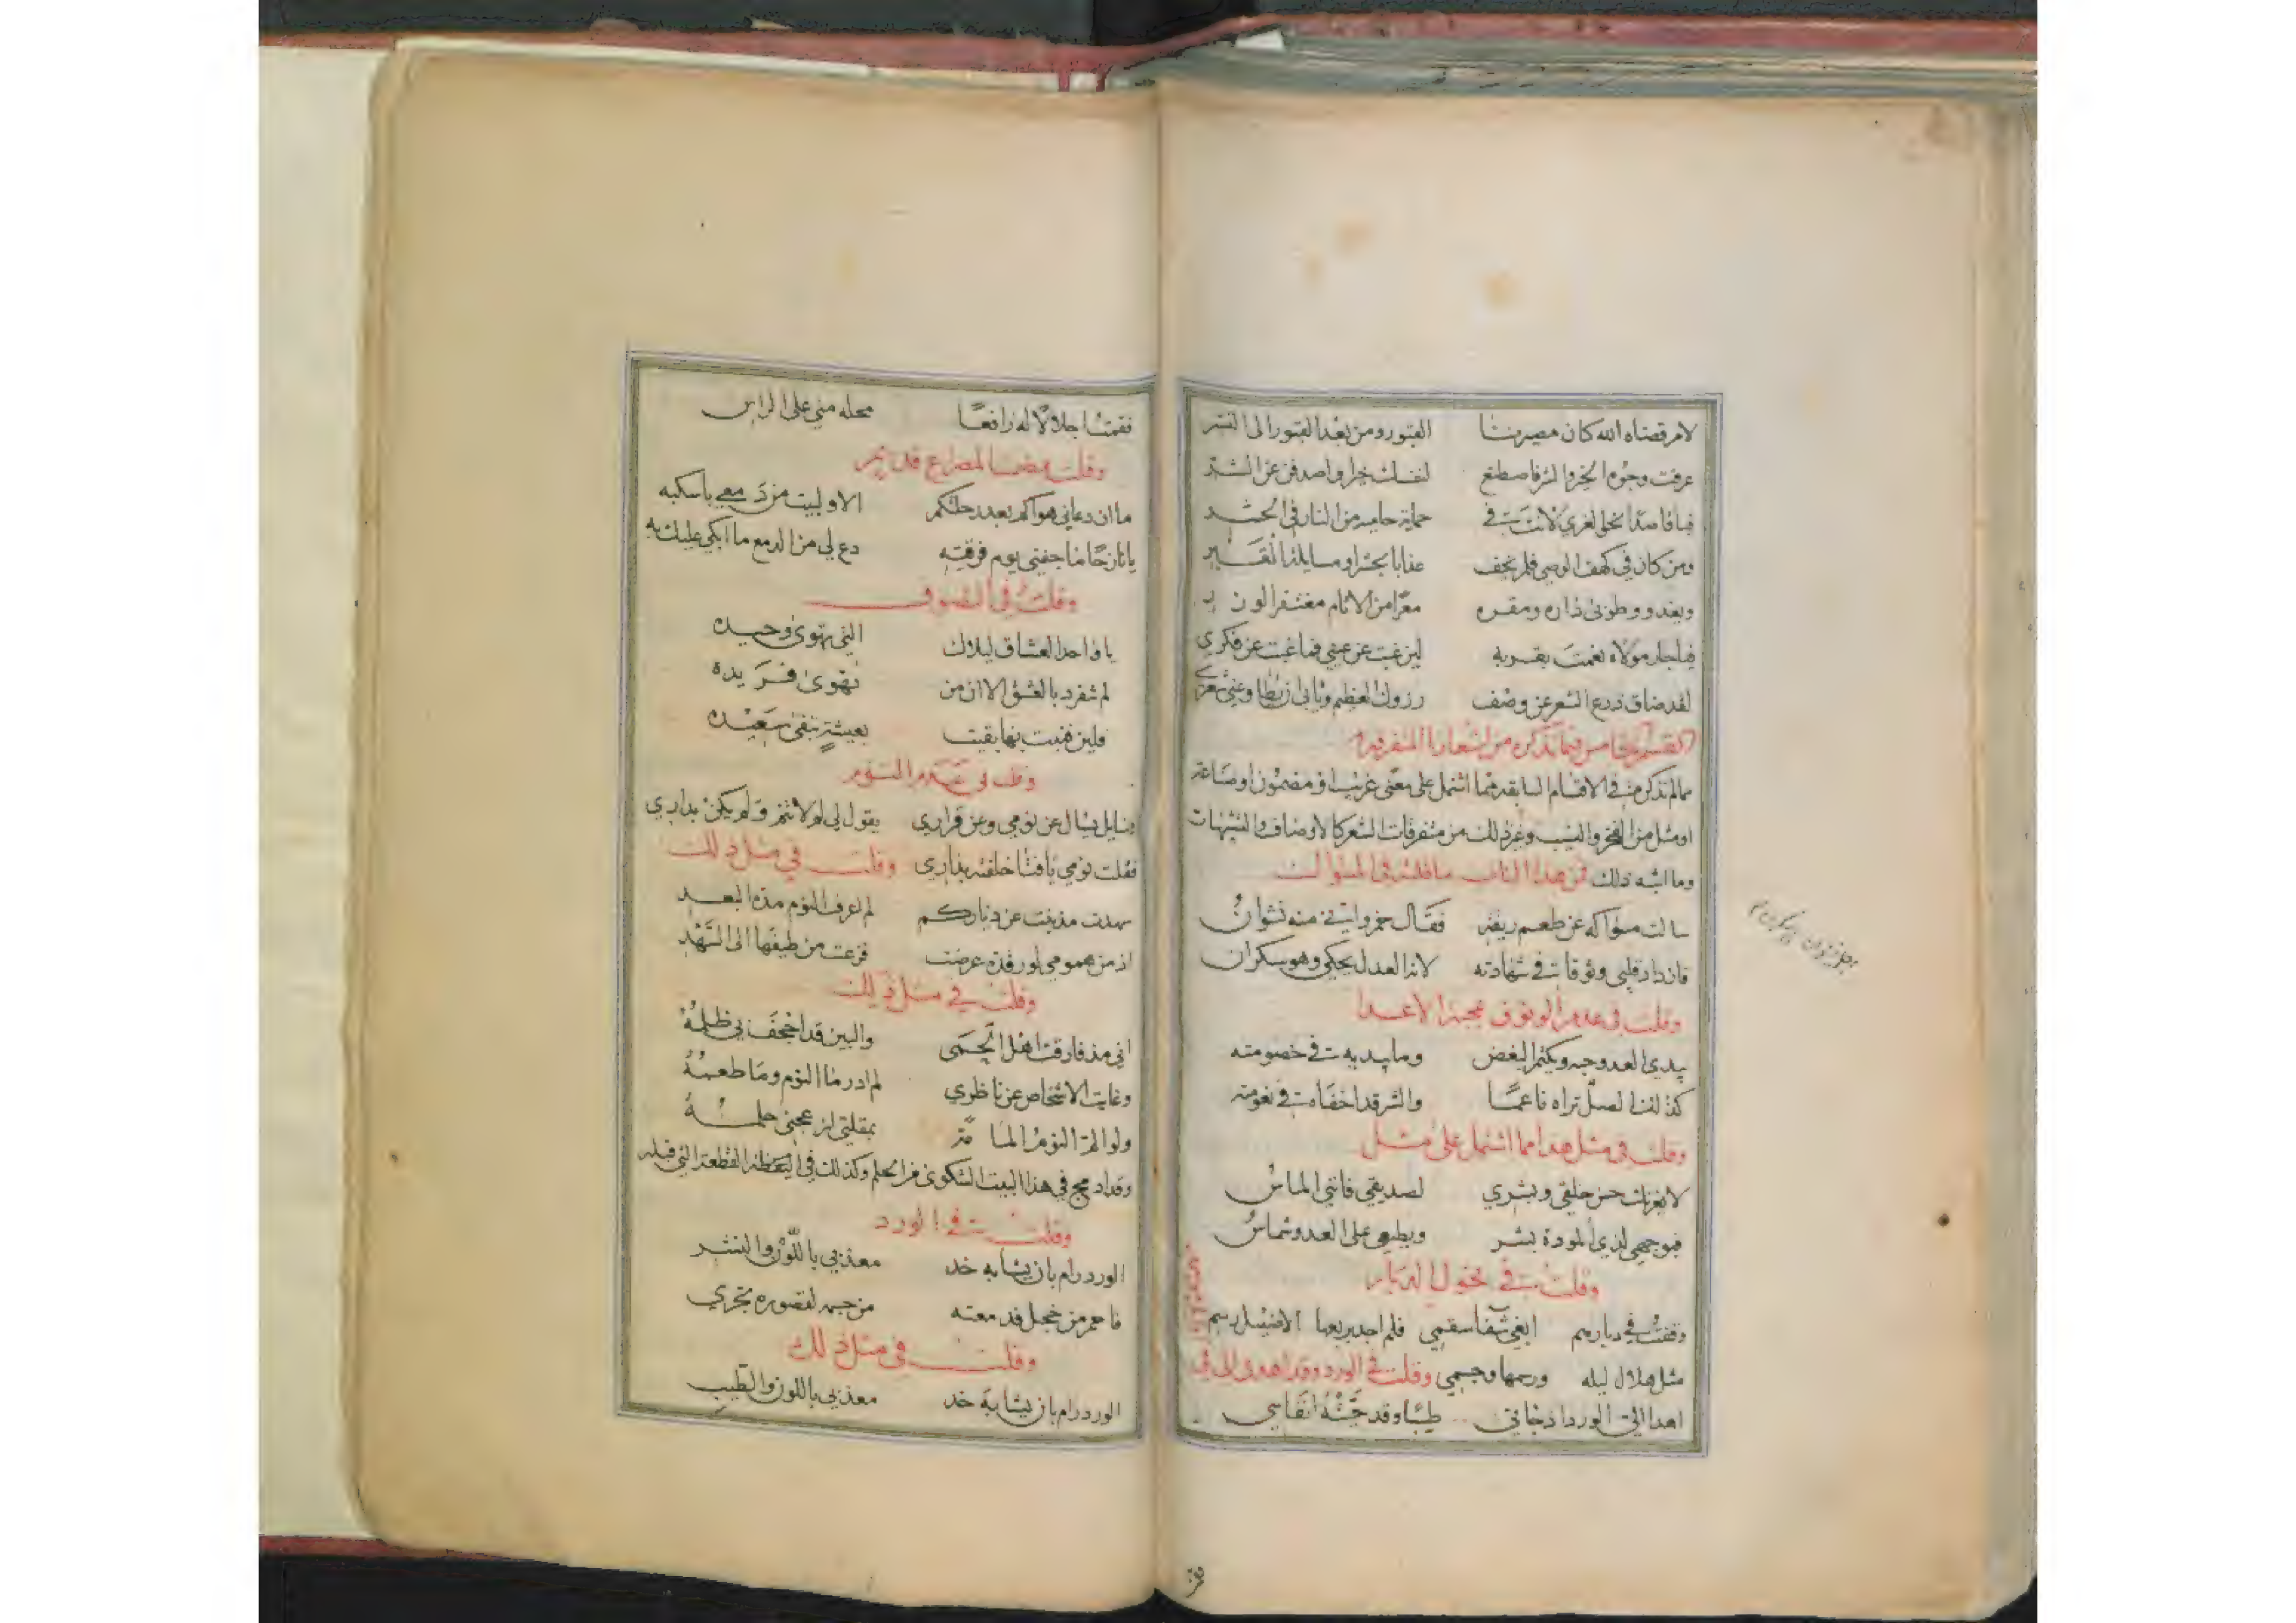 لامر قضاه الله كان مصيرنا القبور ومن بعد القبور الى النشر
عرفت وجوه الخير والشر فاصطنع لنفسك خيرا واصدفن عن الشر
فيا قاصدا نحلي الغري لانت في حماية حاميه من النار في الحشر
ومن كان في كهف الوصي فلم يخف عذابا بحشر او مسايلة القبر
ويغدو وطوبى داره ومقره معرا من الاثام مغتفر الوزر
فيا جار مولاه نعمت بقربه لين غبت عن عيني فما غبت عن فكري
لقد ضاق ذرع الشعر عن وصف رزوك العظيم
القسم الخامس فيما نذكره من اشعارنا المتفرقة
مما لم نذكر منه في الاقسام السابقة مما اشتمل على معنى غريب او مضمون او صناعة
او مثل من الفخر والنسيب وغير ذلك من متفرقات الشعر كالاوصاف والتشبيهات
وما اشبه ذلك فمن هذا الباب ما قلته في المسواك
سالت مسواكه عن طعم ريقته فقال خمر واني منه نشوان
فازداد قلبي وثوقا في شهادته لانه العدل يحكي وهو سكران
وقلت في عدم الوثوق بمحبة الاعدا
يبدي العدو وجه ويكتم البغض وما يبديه في خصومته
كذلك الصل تراه ناعما والشر قد اخفاه في نعومته
وقلت في مثل هذا مما اشتمل على مثل
لا يغرنك حسن خلقي وبشري لصديقي فانني الماس
فبوجهي لذي المودة بشر وبطبعي على العدو شماس
وقلت في نحول الديار
وقفت في ديارهم ابغي شفا سقمي فلم اجد بربعها الا ضئيل رسم
مثل هلال ليله ورسمها وجسمي وقلت في الورد وقد اهدى الي في
اهدا الي الورد اذ جاني طيبا وقد حيته انفاسي
فقمت اجلالا له رافعا محله مني على الراس
وقلت مضمنا لمصراع قديم
ما ان دعاني هواكم بعد رحلتكم الا ولبيت من دمعي باسكبه
يا نازحا ما جفني يوم فرقته دع لي من الدمع ما ابكي عليك به
وقلت في التصوف
يا واحد العشاق ليلاك التي تهوى وحيده
لم تنفرد بالعشق الا ان من تهوى فريده
فلين فنيت بها بقيت بعيشة تبقى سعيده
وقلت في عدم النوم
وسايل يسال عن نومي وعن قراري يقول لي لم لا تنم ولم يكن بداري
فقلت نومي يا فتا خلفته بداري وقلت في مثل ذلك
سهدت مذ بنت عن دياركم لم اعرف النوم مذة البعد
اذ من همومي لو رقدة عرضت فزعت من طيفها الى السهد
وقلت في مثل ذلك
اني مذ فارقت اهل الحمى والبين قد اجحف بي ظلمه
وغابت الاشخاص عن ناظري لم ادر ما النوم وما طعمه
ولو الم النوم المامة بمقلتي ازعجني حلمه
وقد ادمج في هذا البيت الشكوى من الحلم وكذلك في اليقظة القطعة التي قبله
وقلت في الورد
الورد رام بان يشابه خد معذبي باللون والنشر
فاحمر من خجل فدمعته من جسمه لقصوره تجري
وقلت في مثل ذلك
الورد رام بان يشابه خد معذبي باللون والطيب